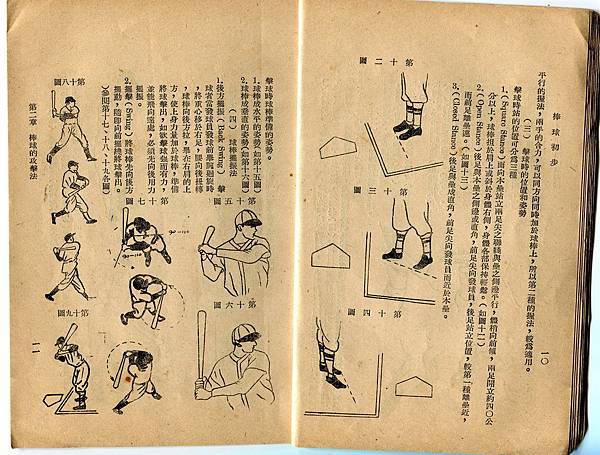 棒球初步
一〇
平行的握法，兩手的合力，可以同方向同時加於球棒上，所以第二種的握法，較爲適用。
（三） 擊球時的位置和姿勢
擊球時站的位置可分爲三種
1.（Square Stance）面向本壘站立兩足尖之聯綫與壘之側邊平行，體稍向前傾，兩足開立約四〇公
分以上，球棒扭於肩上或斜於身體右側，身體各部保持輕鬆。（如圖十二）
2.（Open Stance）後足與本壘之側邊成直角，前足尖向發球員，後足站立位置，較第一種離壘近，
而前足離壘遠。（如圖十三）
3.（Closed Stance）後足與壘成直角，前足尖向發球員而近於本壘。
第十二圖
第十三圖
第十四圖
擊球時球棒準備的姿勢。
1.球棒成水平的姿勢（如第十五圖）
2.球棒成垂直的姿勢（如第十六圖）
（四） 球棒搖振法
1.後方搖振（Back Swing） 擊
球者當發球員發球前舉迴旋時
，將重心移於右足，肩向後扭轉
，球棒向後方，舉在右肩的上
方，使上身力量加於球棒，準備
將球擊出，如欲擊球強而有力，
並能飛向遠處，必須先向後用力
搖振。
2.擺擊（Swing） 將球棒向後方
擺動，隨即向前擺繞將球擊出。
（參閱第十七、十八、十九各圖）
第十五圖
第十六圖
第十七圖
第十八圖
第十九圖
第二章 棒球的攻擊法
一一